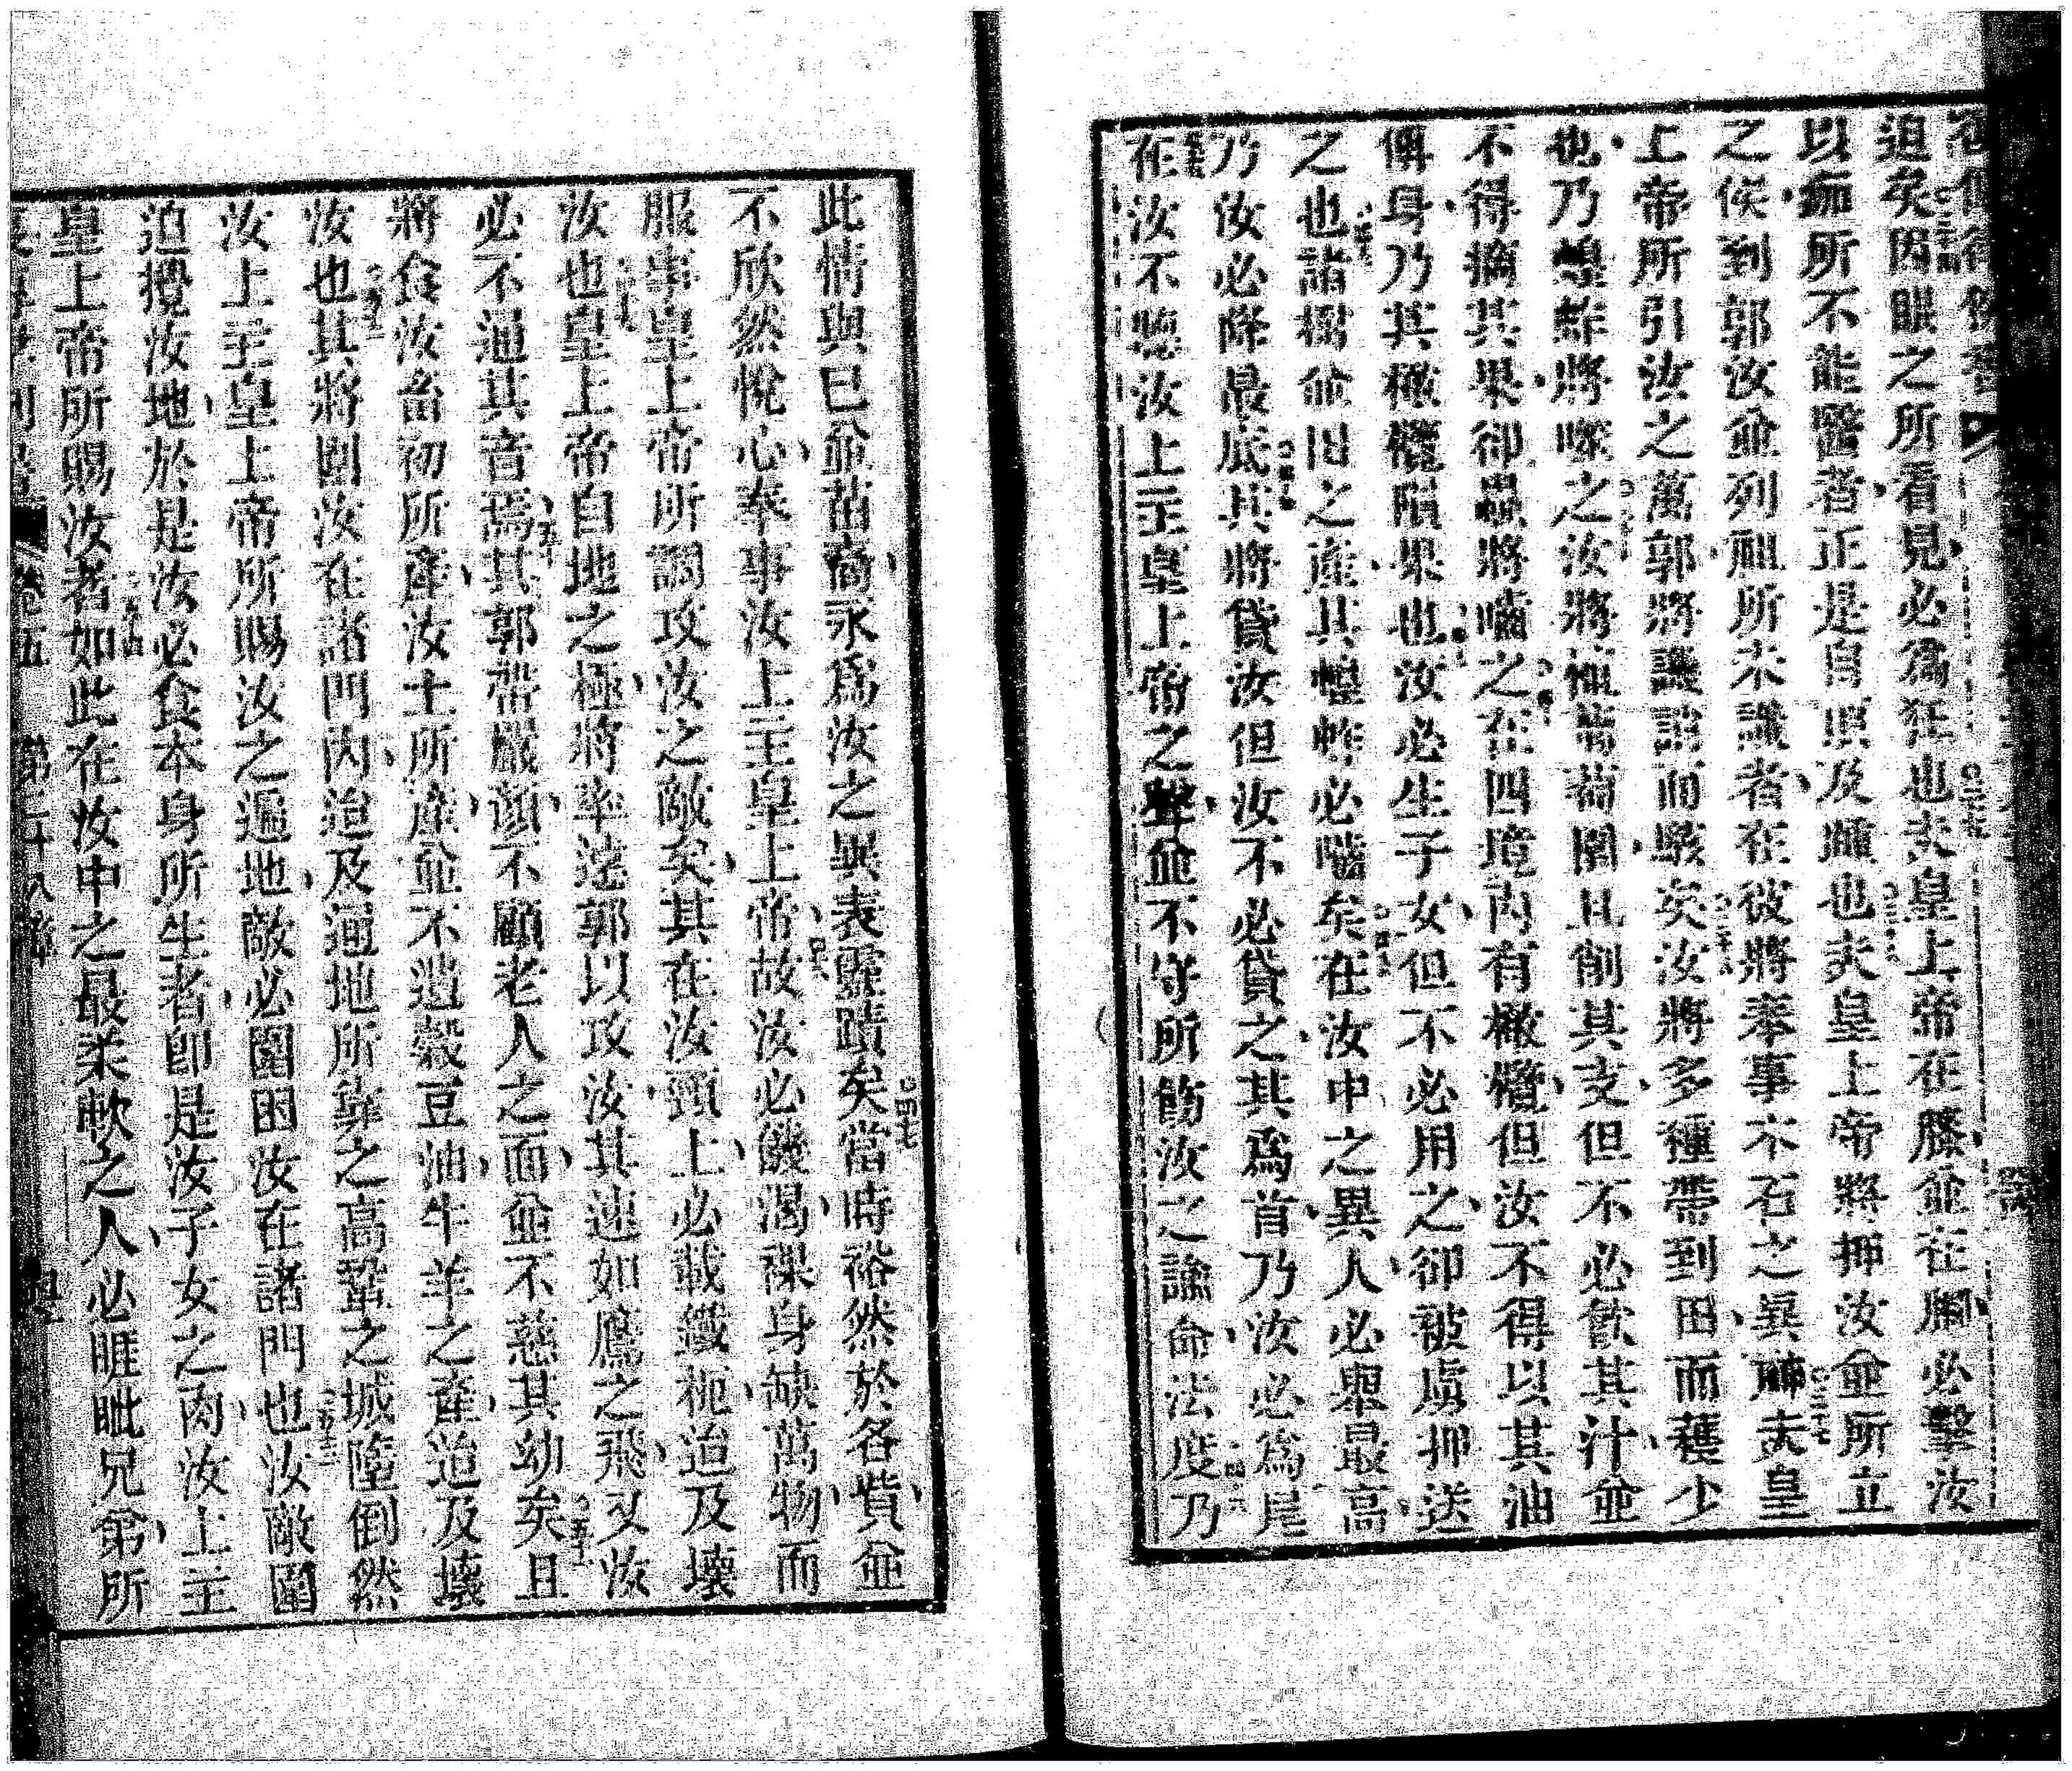 迫矣因眼之所看見必為狂也夫皇上帝在膝並在腳必擊汝
以痂所不能醫者正是自頂及踵也夫皇上帝將押汝並所立
之侯到郭汝並列祖所未識者在彼將奉事木石之異神夫皇
上帝所引汝之萬郭將譏誚而駭矣汝將多種帶到田而穫少
也乃蝗蚱將喫之汝將植葡萄園且削其支但不必飲其汁並
不得摘其果卻蟲將嚙之在四境內有橄欖但汝不得以其油
傅身乃其橄欖隕果也汝必生子女但不必用之卻被虜押送
之也諸樹並田之產其蝗蚱必嚙矣在汝中之異人必舉最高
乃汝必降最底其將貸汝但汝不必貸之其為首乃汝必為尾
在汝不聽汝上主皇上帝之聲並不守所飭汝之諭命法度乃
此情與已並苗裔永為汝之異表靈蹟矣當時裕然於各貲並
不欣然悅心奉事汝上主皇上帝故汝必饑渴裸身缺萬物而
服事皇上帝所調攻汝之敵矣其在汝頸上必載鐵枙迨及壞
汝也皇上帝自地之極將率遠郭以攻汝其速如鷹之飛又汝
必不通其音焉其郭帶嚴顏不顧老人之面並不慈其幼矣且
將食汝畜初所產汝土所產並不遺穀豆油牛羊之產迨及壞
汝也其將圍汝在諸門內迨及遍地所靠之高鞏之城墮倒然
汝上主皇上帝所賜汝之遍地敵必圍困汝在諸門也汝敵圍
迫攪汝地於是汝必食本身所生者即是汝子女之肉汝上主
皇上帝所賜汝者如此在汝中之最柔軟之人必睚眦兄弟所
卷五 第二十八章